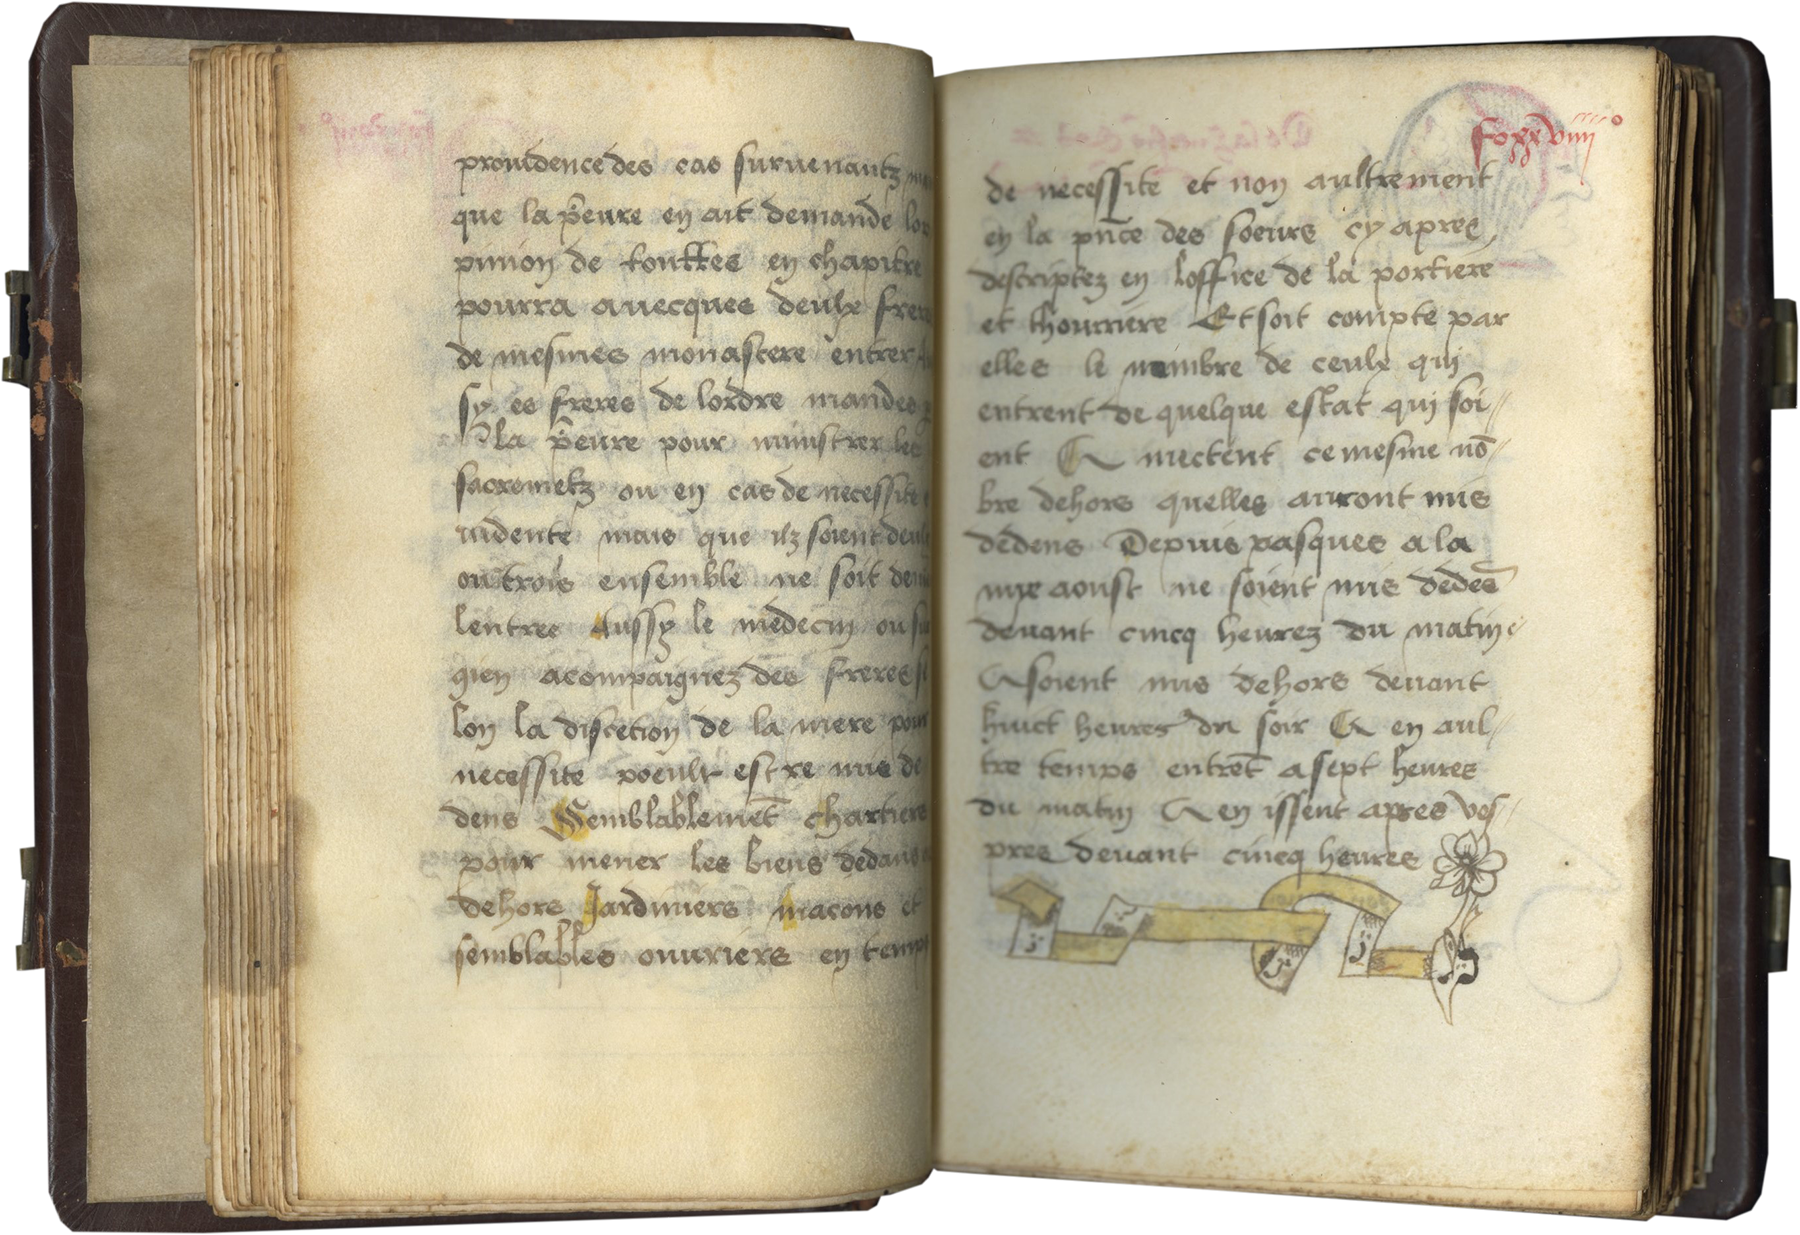 prouidence des cas suruenantz
que la p̃eure en ait demande lo
pinion de touttes en chapitre
pourra auecques deulx frer
de mesmes monastere entrer
sy es freres de lordre mandes
la p̃eure pour ministrer les
sacremẽtz ou en cas de necessite
uidente mais que ilz soient deul
ou trois ensemble ne soit den
lentree Aussy le medecin ou su
gien acompaignez des freres se
lon la discetion de la mere pour
necessite poeult estre mis de
dens Semblablemẽt chartiers
pour mener les biens dedans
dehors Jardiniers macons et
semblables ouuriers en temps
fo xxxviiii o
de necessite et non aultrement
en la pñce des soeurs cy apres
descriptez en loffice de la portiere
et thourriere Et soit compte par
elles le nombre de ceulx qui
entrent de quelque estat qui soi//
ent Et mectent ce mesme nõ//
bre dehors quelles auront mis
dedens Depuis pasques a la
my aoust ne soient mis dedẽs
deuant cincq heurez du matin
Et soient mis dehors deuant
huict heures du soir Et en aul//
tre temps entrẽt a sept heures
du matin Et en issent apres ves//
pres deuant cincq heures